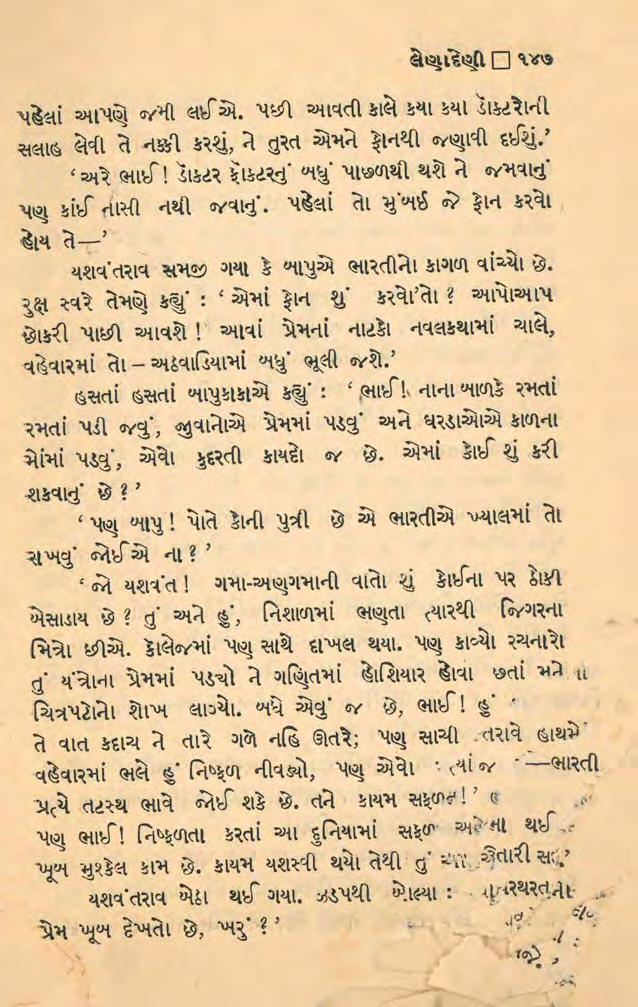 લેણાદેણી □ ૧૪૭
પહેલાં આપણે જમી લઈએ. પછી આવતી કાલે કયા કયા ડૉકટરોની
સલાહ લેવી તે નક્કી કરશું, ને તુરત એમને ફોનથી જણાવી દઈશું.’
‘અરે ભાઈ! ડૉકટર ફૉકટરનું બધું પાછળથી થશે ને જમવાનું
પણ કાંઈ નાસી નથી જવાનું. પહેલાં તો મુંબઈ જે ફોન કરવો
હોય તે—’
યશવંતરાવ સમજી ગયા કે બાપુએ ભારતીનો કાગળ વાંચ્યો છે.
રુક્ષ સ્વરે તેમણે કહ્યું : ‘એમાં ફોન શું કરવો’તો ? આપોઆપ
છોકરી પાછી આવશે! આવાં પ્રેમનાં નાટકો નવલકથામાં ચાલે,
વહેવારમાં તો – અઠવાડિયામાં બધું ભૂલી જશે.’
હસતાં હસતાં બાપુકાકાએ કહ્યું : ‘ભાઈ! નાના બાળકે રમતાં
રમતાં પડી જવું, જુવાનોએ પ્રેમમાં પડવું અને ઘરડાઓએ કાળના
મોંમાં પડવું, એવો કુદરતી કાયદો જ છે. એમાં કોઈ શું કરી
શકવાનું છે?’
‘પણ બાપુ! પોતે કોની પુત્રી છે એ ભારતીએ ખ્યાલમાં તો
રાખવું જોઈએ ના?’
‘જો યશવંત! ગમા-અણગમાની વાતો શું કોઈના પર ઠોકી
બેસાડાય છે? તું અને હું, નિશાળમાં ભણતા ત્યારથી જિગરના
મિત્રો છીએ. કૉલેજમાં પણ સાથે દાખલ થયા. પણ કાવ્યો રચનારો
તું યંત્રોના પ્રેમમાં પડયો ને ગણિતમાં હોશિયાર હોવા છતાં મને
ચિત્રપટોનો શોખ લાગ્યો. બધે એવું જ છે, ભાઈ! હું
તે વાત કદાચ ને તારે ગળે નહિ ઊતરે; પણ સાચી
વહેવારમાં ભલે હું નિષ્ફળ નીવડ્યો, પણ એવો જ —ભારતી
પ્રત્યે તટસ્થ ભાવે જોઈ શકે છે. તને કાયમ
પણ ભાઈ! નિષ્ફળતા કરતાં આ દુનિયામાં સફળ થઈ
ખૂબ મુશ્કેલ કામ છે. કાયમ યશસ્વી થયો તેથી તું
યશવંતરાવ બેઠા થઈ ગયા. ઝડપથી બોલ્યા :
પ્રેમ ખૂબ દેખતો છે, ખરું?’